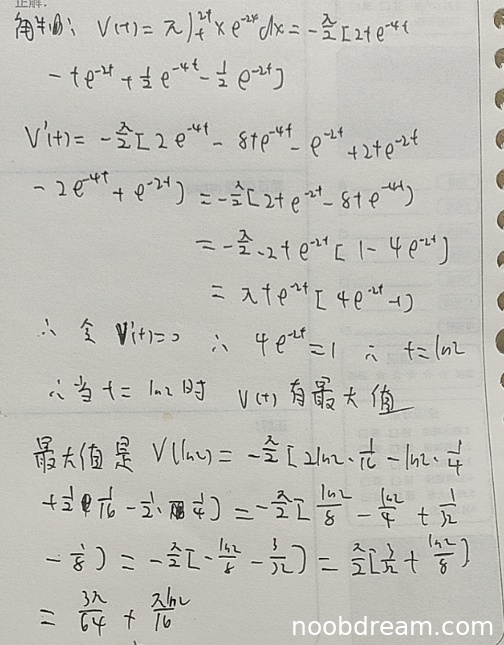 正解:
解: V(t) = π∫ₜ²ᵗ x e⁻²ˣ dx = -π/2 [2t e⁻⁴ᵗ
- t e⁻²ᵗ + 1/2 e⁻⁴ᵗ - 1/2 e⁻²ᵗ]
V'(t) = -π/2 [2 e⁻⁴ᵗ - 8t e⁻⁴ᵗ - e⁻²ᵗ + 2t e⁻²ᵗ
- 2e⁻⁴ᵗ + e⁻²ᵗ] = -π/2 [2t e⁻²ᵗ - 8t e⁻⁴ᵗ]
= -π/2 · 2t e⁻²ᵗ [1 - 4e⁻²ᵗ]
= π t e⁻²ᵗ [4e⁻²ᵗ - 1]
∴ 令 V'(t)=0 ∴ 4e⁻²ᵗ = 1 ∴ t = ln2
∴ 当 t = ln2 时 V(t) 有最大值
最大值是 V(ln2) = -π/2 [2ln2 · 1/16 - ln2 · 1/4
+ 1/2 · 1/16 - 1/2 · 1/4] = -π/2 [ln2/8 - ln2/4 + 1/32
- 1/8] = -π/2 [-ln2/8 - 3/32] = π/2 [3/32 + ln2/8]
= 3π/64 + πln2/16
noobdream.com